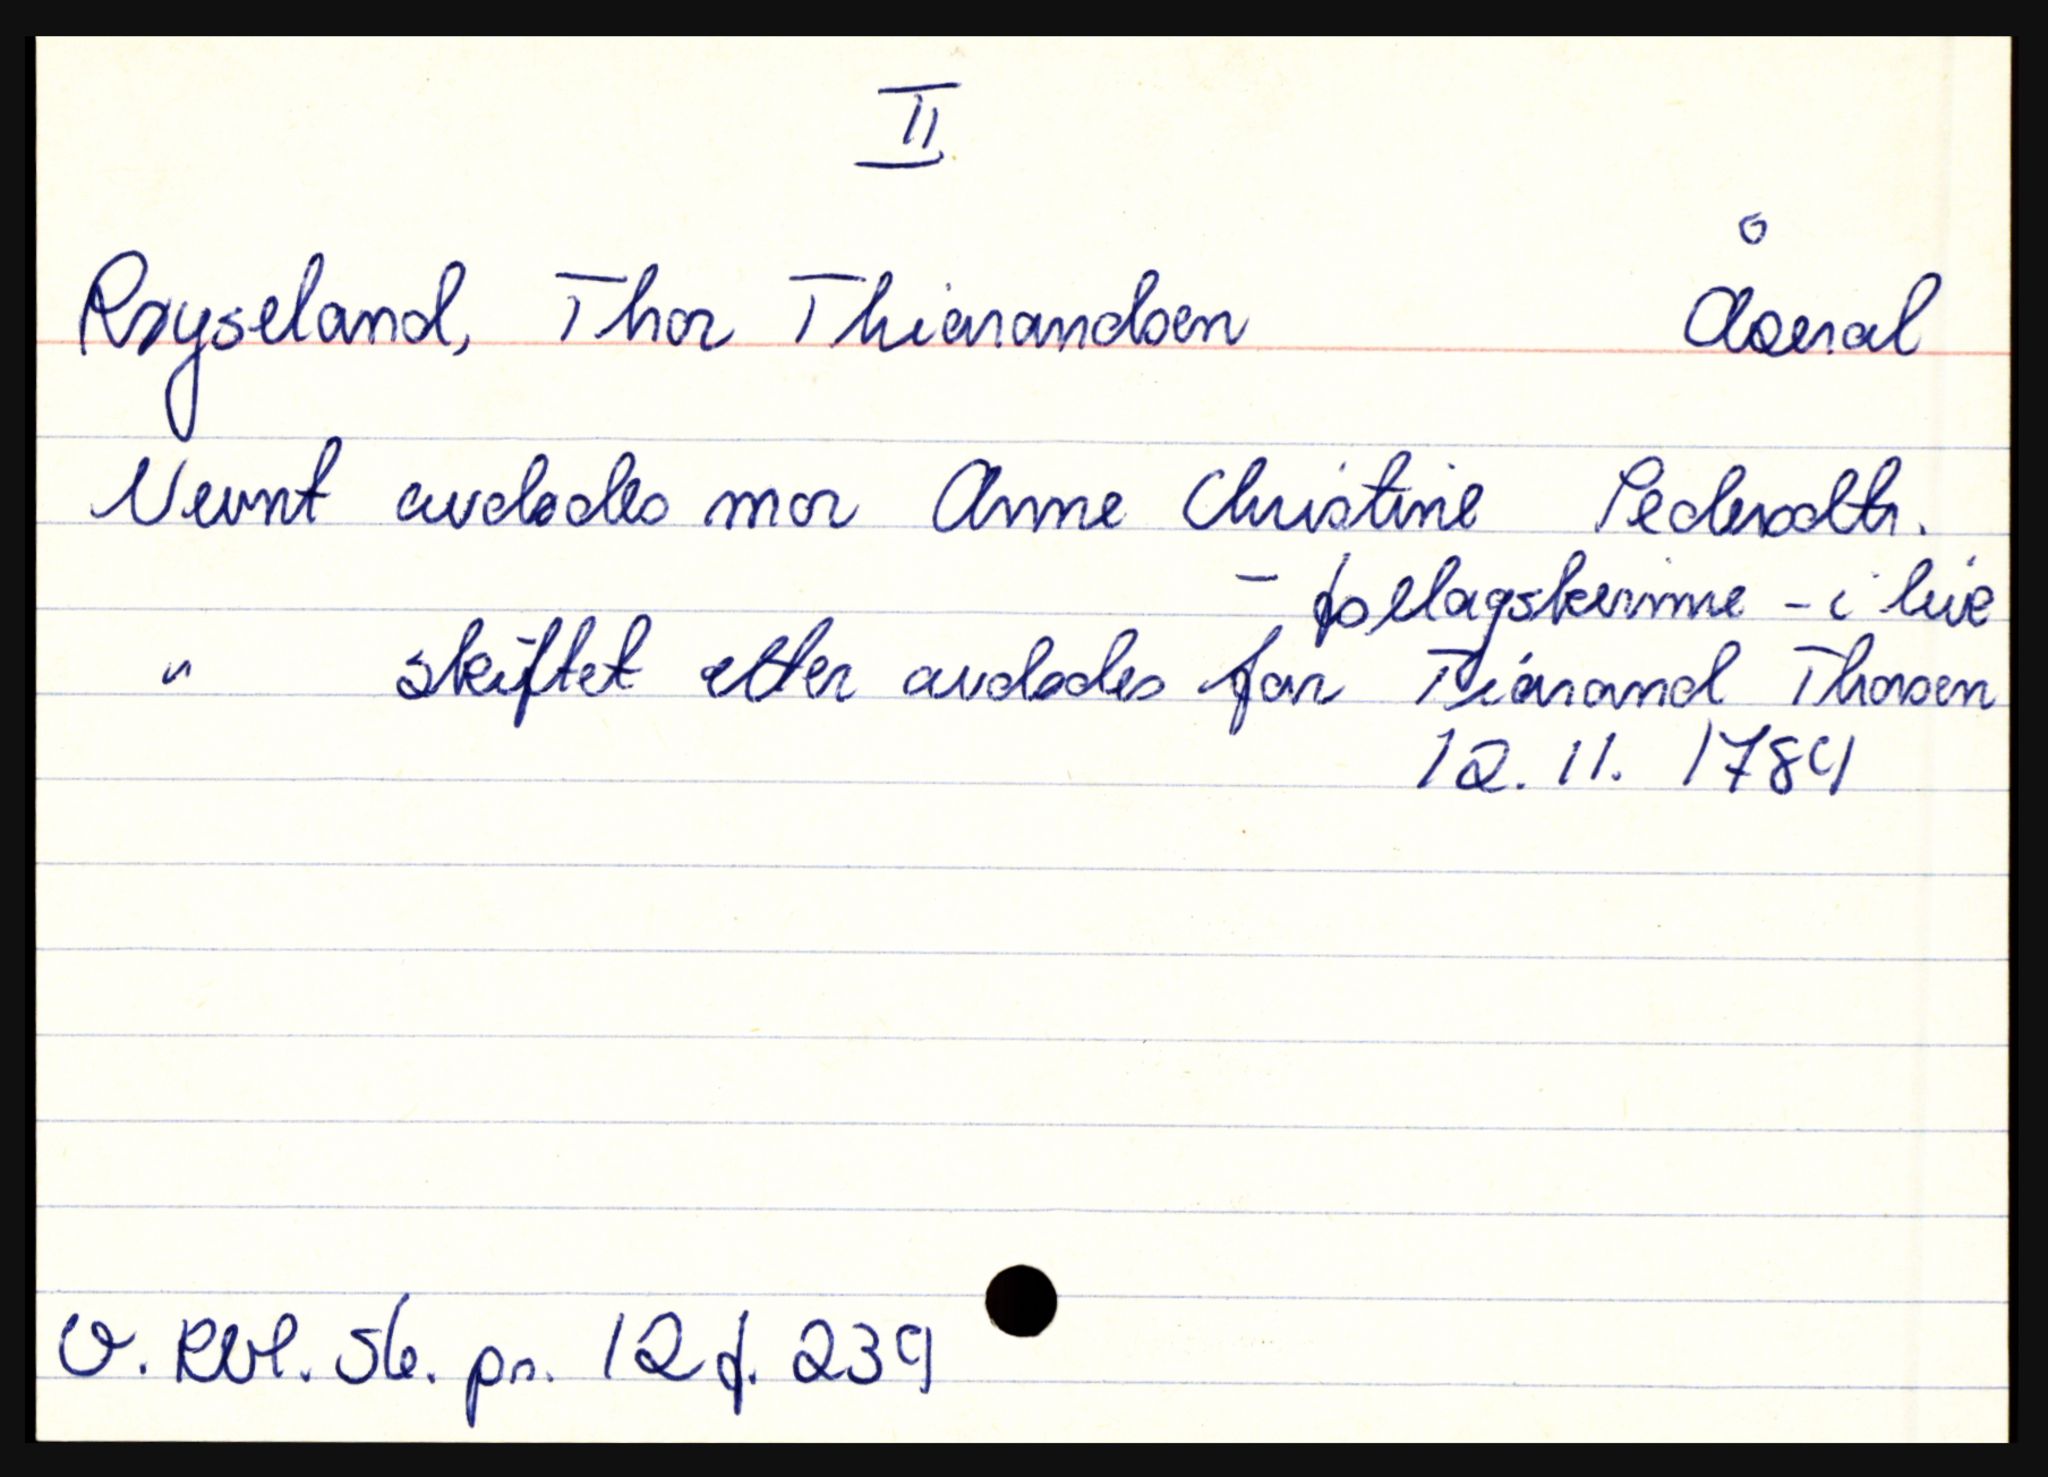 II
Røyseland, Thor Thiarandsen Åseral
Nevnt avdødes mor Anne Christine Pedersdtr.
- følagskvinne - i live
" skiftet etter avdødes far Tiarand Thorsen
12. 11. 1784
V. Rbl. Sk. pr. 12 f. 239